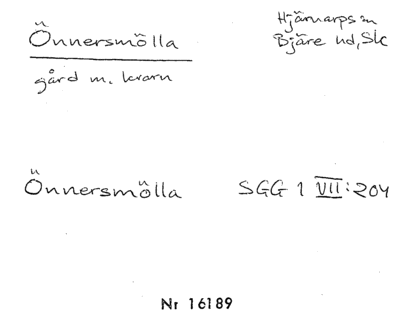 Önnersmölla
Hjärnarps sn
Bjäre hd, Sk
gård m. kvarn
Önnersmölla SGG 1 VII:204
Nr 16189